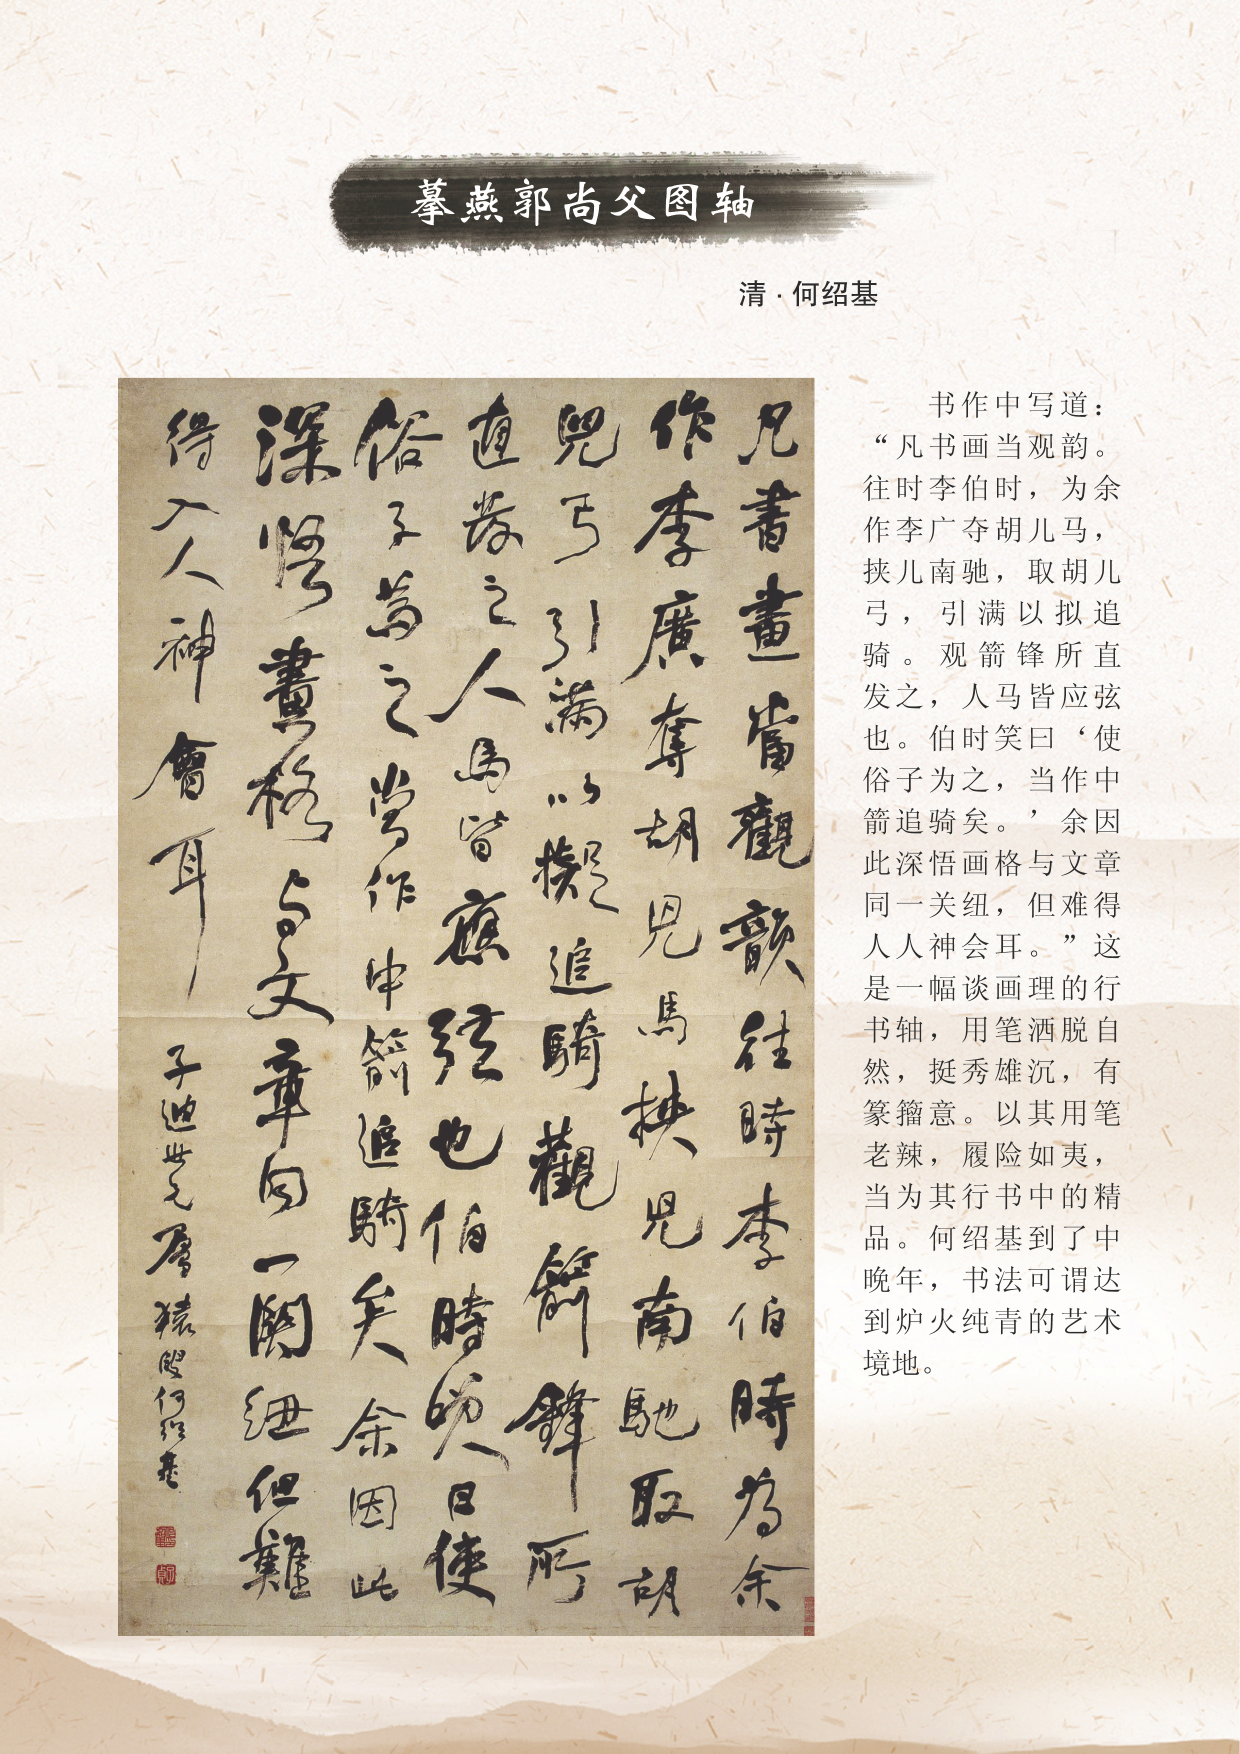 摹燕郭尚父图轴
清·何绍基
凡書畫當觀韻往時李伯時為余
作李廣奪胡兒馬挟兒南馳取胡
兒弓引滿以擬追騎觀箭鋒所
直發之人馬皆應弦也伯時笑曰使
俗子為之當作中箭追騎矣余因此
深悟畫格与文章同一關纽但難
得入人神會耳
子迪世兄屬 猿叟何绍基
书作中写道：
“凡书画当观韵。
往时李伯时，为余
作李广夺胡儿马，
挟儿南驰，取胡儿
弓，引满以拟追
骑。观箭锋所直
发之，人马皆应弦
也。伯时笑曰‘使
俗子为之，当作中
箭追骑矣。’余因
此深悟画格与文章
同一关纽，但难得
人人神会耳。”这
是一幅谈画理的行
书轴，用笔洒脱自
然，挺秀雄沉，有
篆籀意。以其用笔
老辣，履险如夷，
当为其行书中的精
品。何绍基到了中
晚年，书法可谓达
到炉火纯青的艺术
境地。